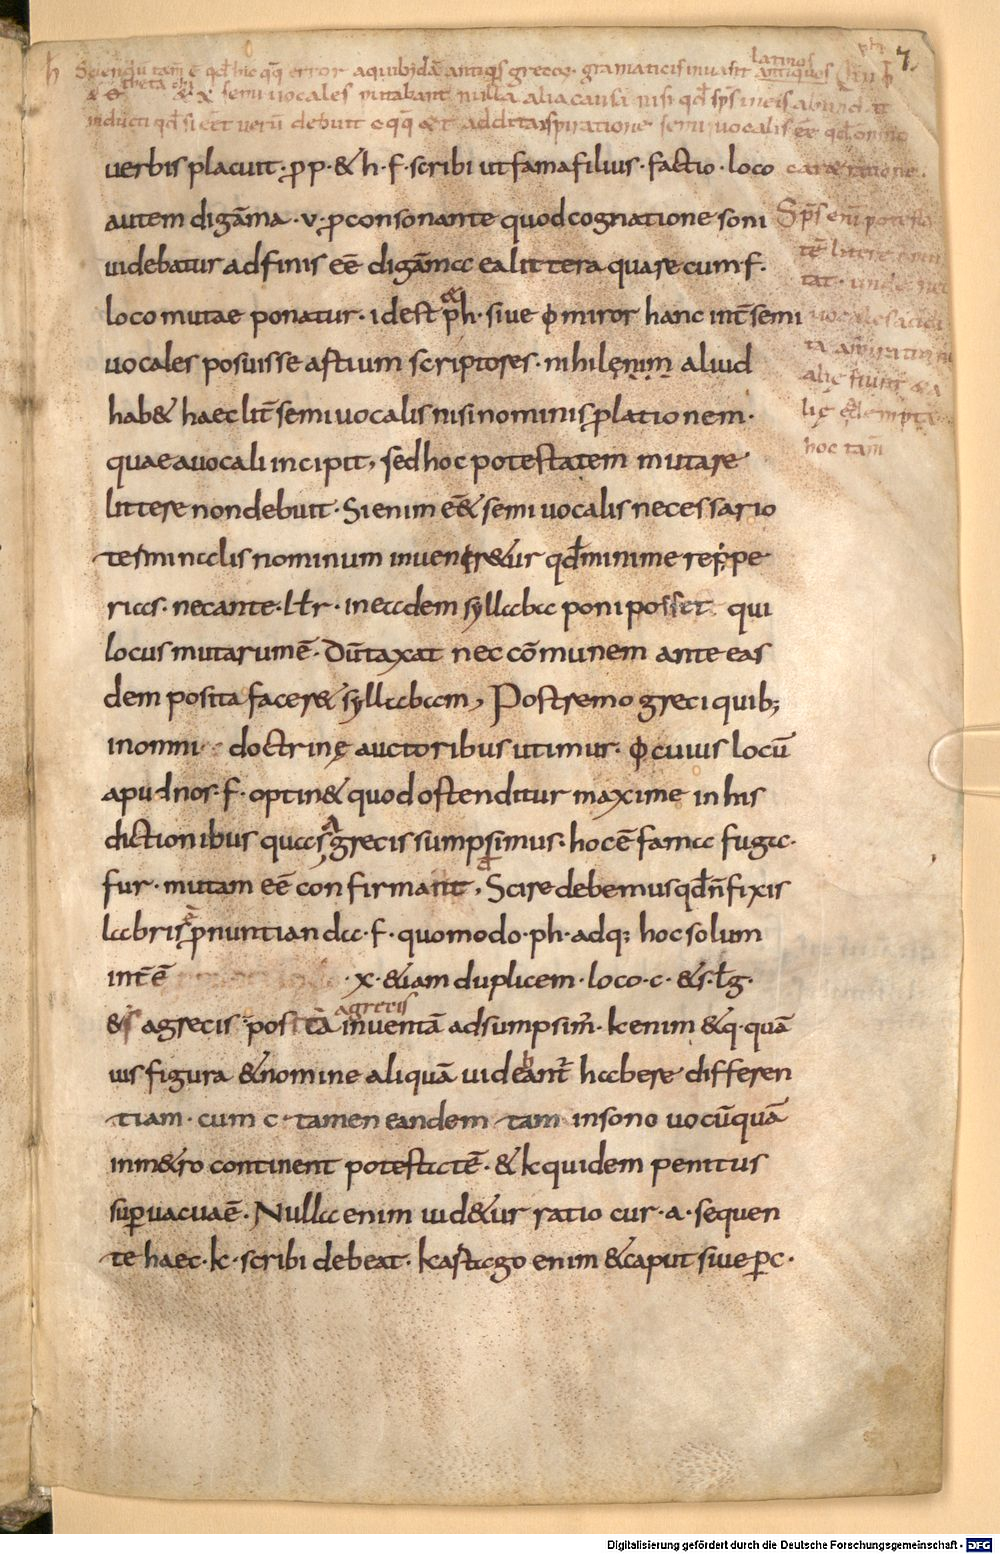 7.
Sciendū tam̄ ē qd̄ hic q̄q; error a quibusdā antiquis grecoꝝ gramaticis inuasit latinos
antiquos
theta chi
semiuocales putabant nulla alia causa nisi qd̄ sp̄s in eis abund
inducti qd̄ si eēt uerū debuit c q̄q; eēt addita aspiratione semiuocalis eē qd̄ omni
caret ratione.
Sp̄s enī potesta
tē littere
mutat unde nec
uocales addi
ta aspiratione
aliȩ fiunt & a
liȩ dempta
hoc tam̄
uerbis placuit· ꝓ p· & h· f· scribi ut fama filius· factio· loco
autem digām̄a· v· ꝓ consonante quod cognatione soni
uidebatur adfinis eē digām̄a ea littera quare cum f·
loco mutae ponatur· idest & ph· siue ϕ miror hanc int̄ semi
uocales posuisse artium scriptores· nihil enim aliud
hab& haec lit̄ semiuocalis nisi nominis ꝓlationem·
quae a uocali incipit, sed hoc potestatem mutare
littere non debuit· Si enim eē& semiuocalis necessario
terminalis nominum inueniretur qd̄ minime reppe
rias· nec ante· l ł r· in eadem syllaba poni posset qui
locus mutarum ē· Dūtaxat nec cōmunem ante eas
dem posita facer& syllabam, Postremo greci quib;
in omni doctrinȩ auctoribus utimur· ϕ cuius locū
apud nos· f· optin& quod ostenditur maxime in his
dictionibus quas a grecis sumpsimus· hoc ē fama fuga·
fur· mutam eē confirmant· Scire debemus qd̄ n̄ fixis
labris ē pronuntianda· f· quomodo· ph· adq; hoc solum
int̄ ē · x· &iam duplicem· loco· c· & s· ł g·
& s a grecis post ea a grecis inuentā adsumpsim̄· k enim & q· quā
uis figura & nomine aliquā uideant̄ habere differen
tiam· cum c· tamen eandem tam in sono uocū quā
in m&ro continent potestatē· & k quidem penitus
suꝑuacua ē· Nulla enim uid&ur ratio cur· a· sequen
te haec· k· scribi debeat· kartago enim & caput siue ꝑ c·
Digitalisierung gefördert durch die Deutsche Forschungsgemeinschaft - DFG